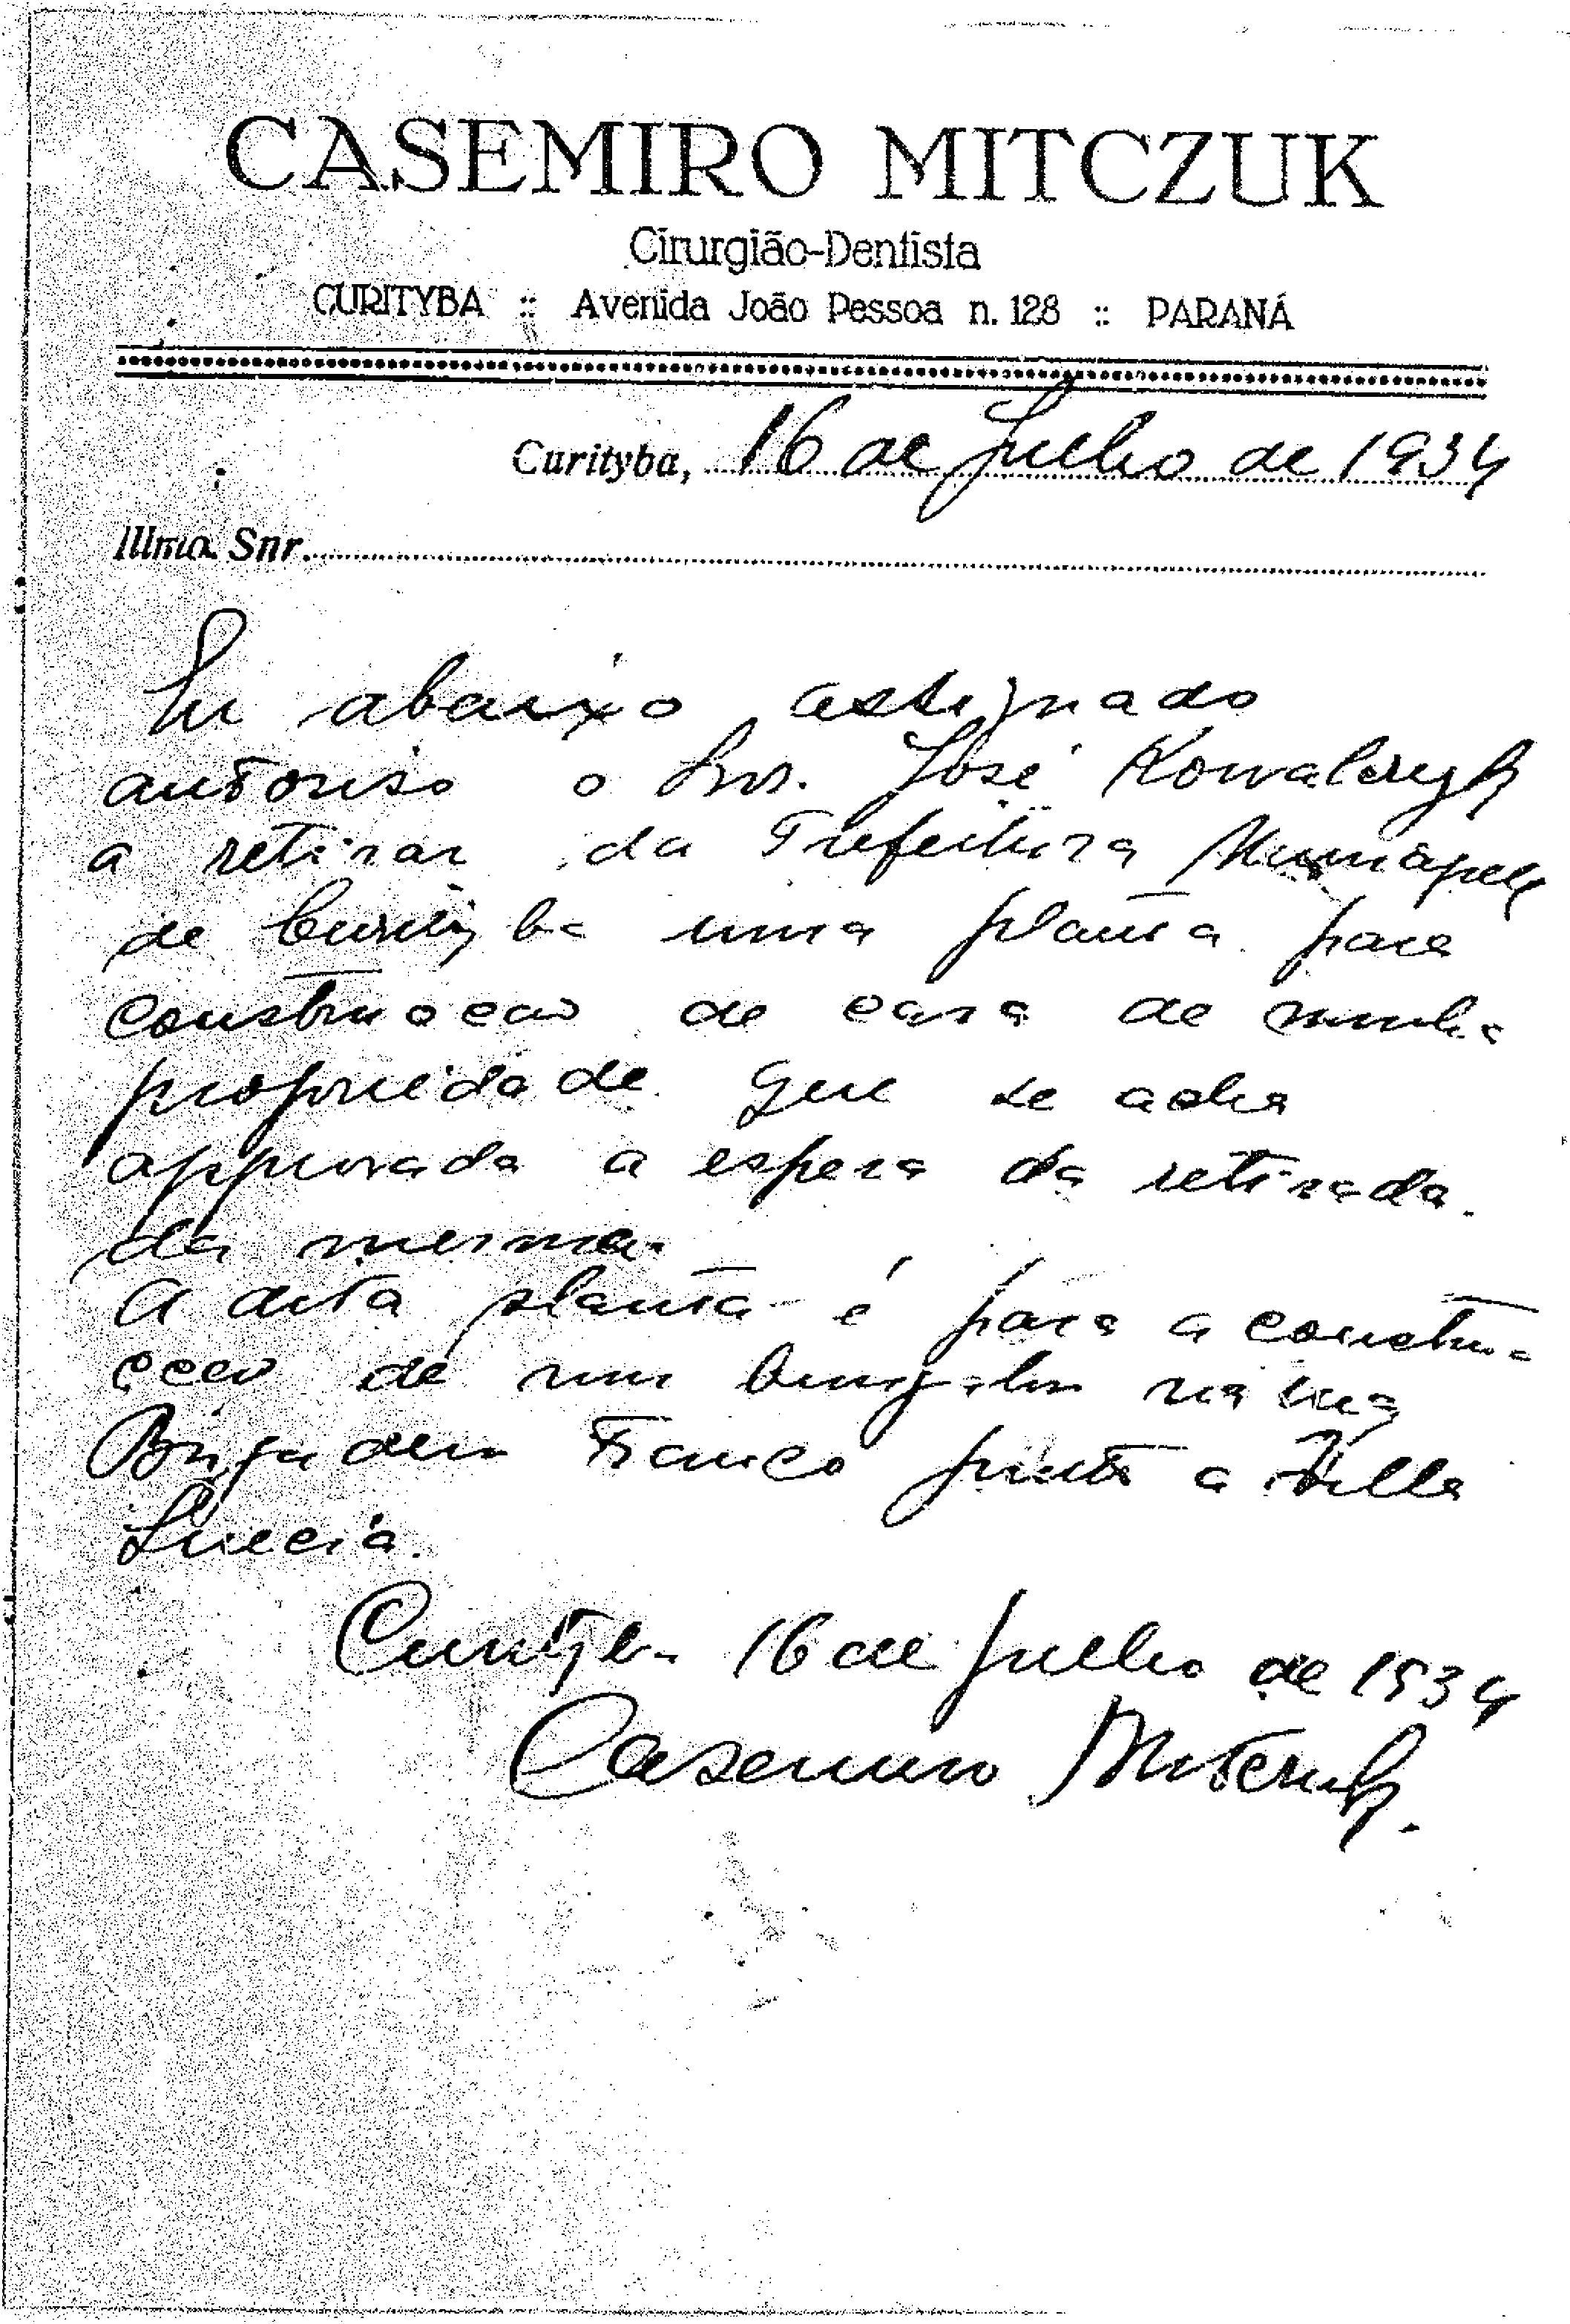 CASEMIRO MITCZUK
Cirurgião-Dentista
CURITYBA :: Avenida João Pessoa n. 128 :: PARANÁ
Curityba, 16 de Julho de 1934
Illmo. Snr.
Eu abaixo assignado
autoriso o Snr. José Kowalczyk
a retirar da Prefeitura Municipal
de Curityba uma planta para
construcção de casa de minha
propriedade que se acha
approvada a espera da retirada
da mesma.
A dita planta é para a constru-
cção de um bungalow na rua
Brigadeiro Franco junto a Villa
Suecia.
Curityba 16 de Julho de 1934
Casemiro Mitczuk.